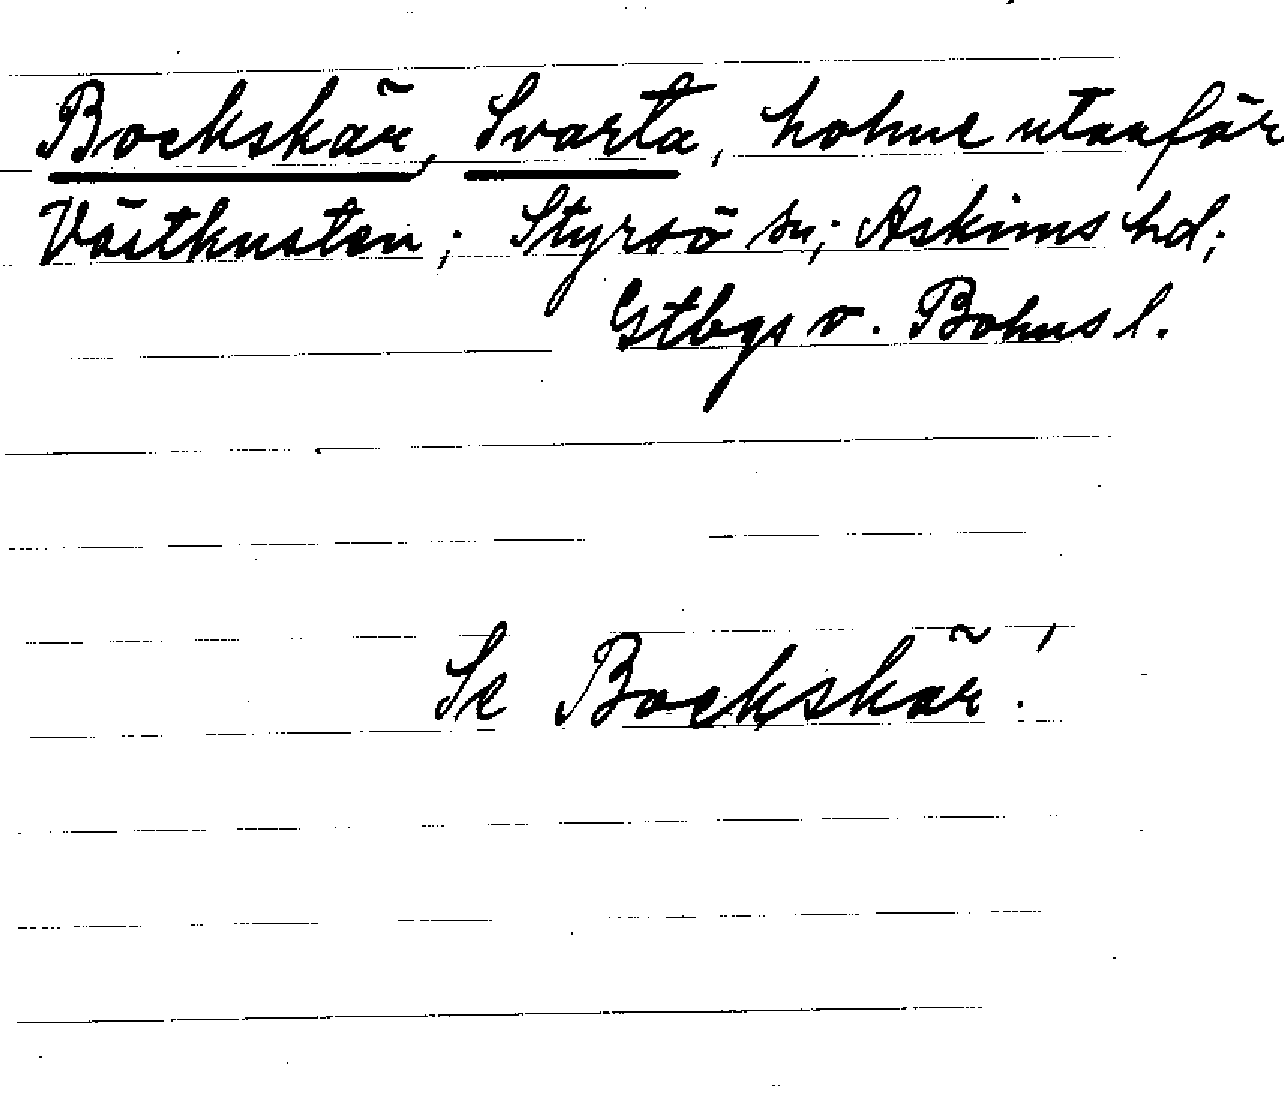 Bockskär, Svarta, holme utanför
Västkusten; Styrsö sn; Askims hd;
Gtbgs o. Bohus l.
Se Bockskär!